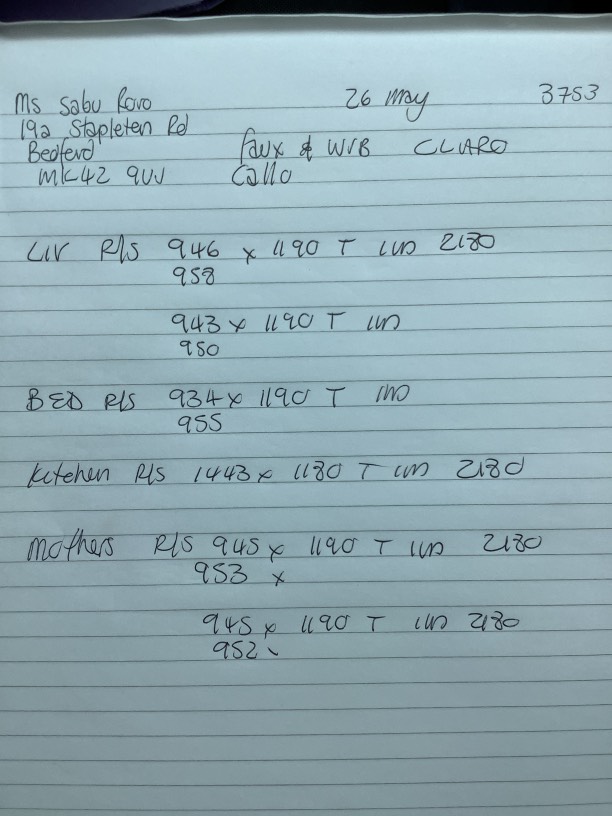 Ms Sabu Rovo 26 May 3753
19a Stapleten Rd
Bedford Faux & W/B CLLARO
MK42 9UJ Callo
LIV R/S 946 x 1190 T 2180
958
943 x 1190 T
950
BED R/S 934 x 1190 T
955
Kitchen R/S 1443 x 1180 T 2180
Mothers R/S 945 x 1190 T 2180
953 x
945 x 1190 T 2180
952